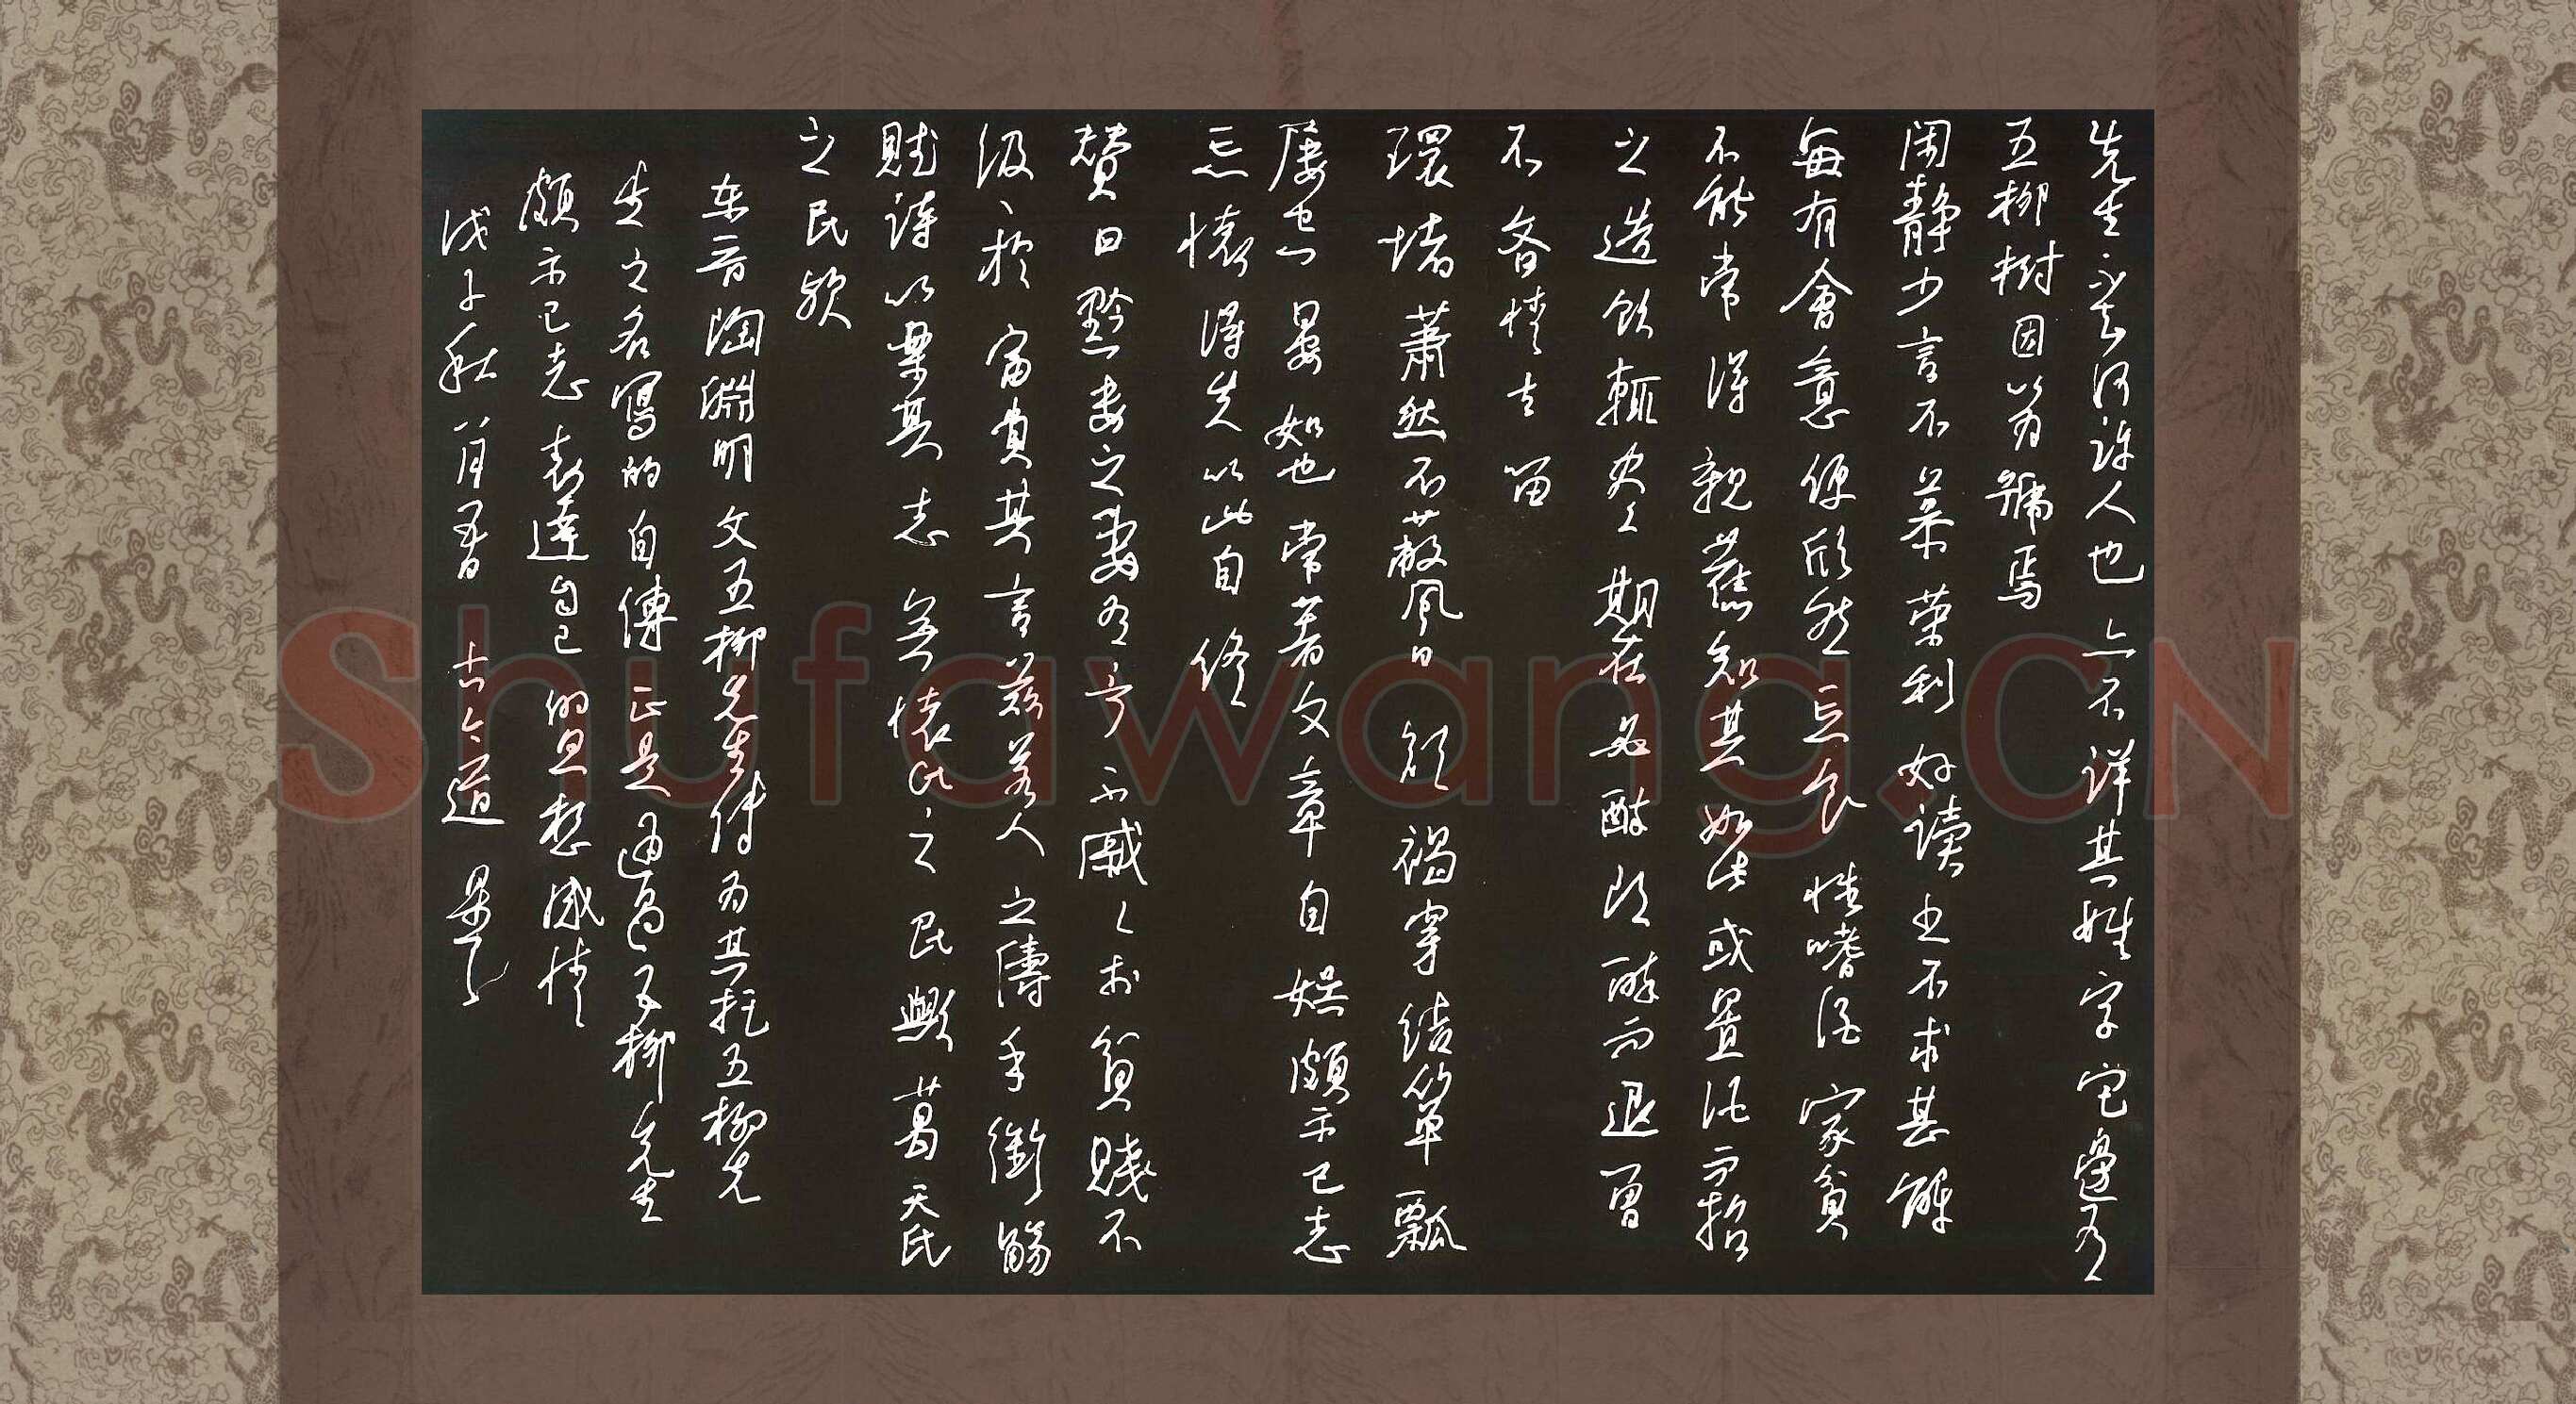 先生不知何許人也亦不詳其姓字宅邊有
五柳樹因以為號焉
闲静少言不慕荣利好读书不求甚解
每有會意便欣然忘食性嗜酒家貧
不能常得親舊知其如此或置酒而招
之造飲輒尽期在必醉既醉而退曾
不吝情去留
環堵蕭然不蔽風日短褐穿结箪瓢
屢空晏如也常著文章自娱頗示己志
忘懷得失以此自终
贊曰黔娄之妻有言不戚戚於貧賤不
汲汲於富貴其言兹若人之儔乎銜觴
賦诗以樂其志無懷氏之民歟葛天氏
之民欤
东晋陶淵明文五柳先生传为其托五柳先
生之名寫的自傳正是通過五柳先生
頗示己志表達自己的思想感情
戊子秋八月 古今道
Shufawang.CN